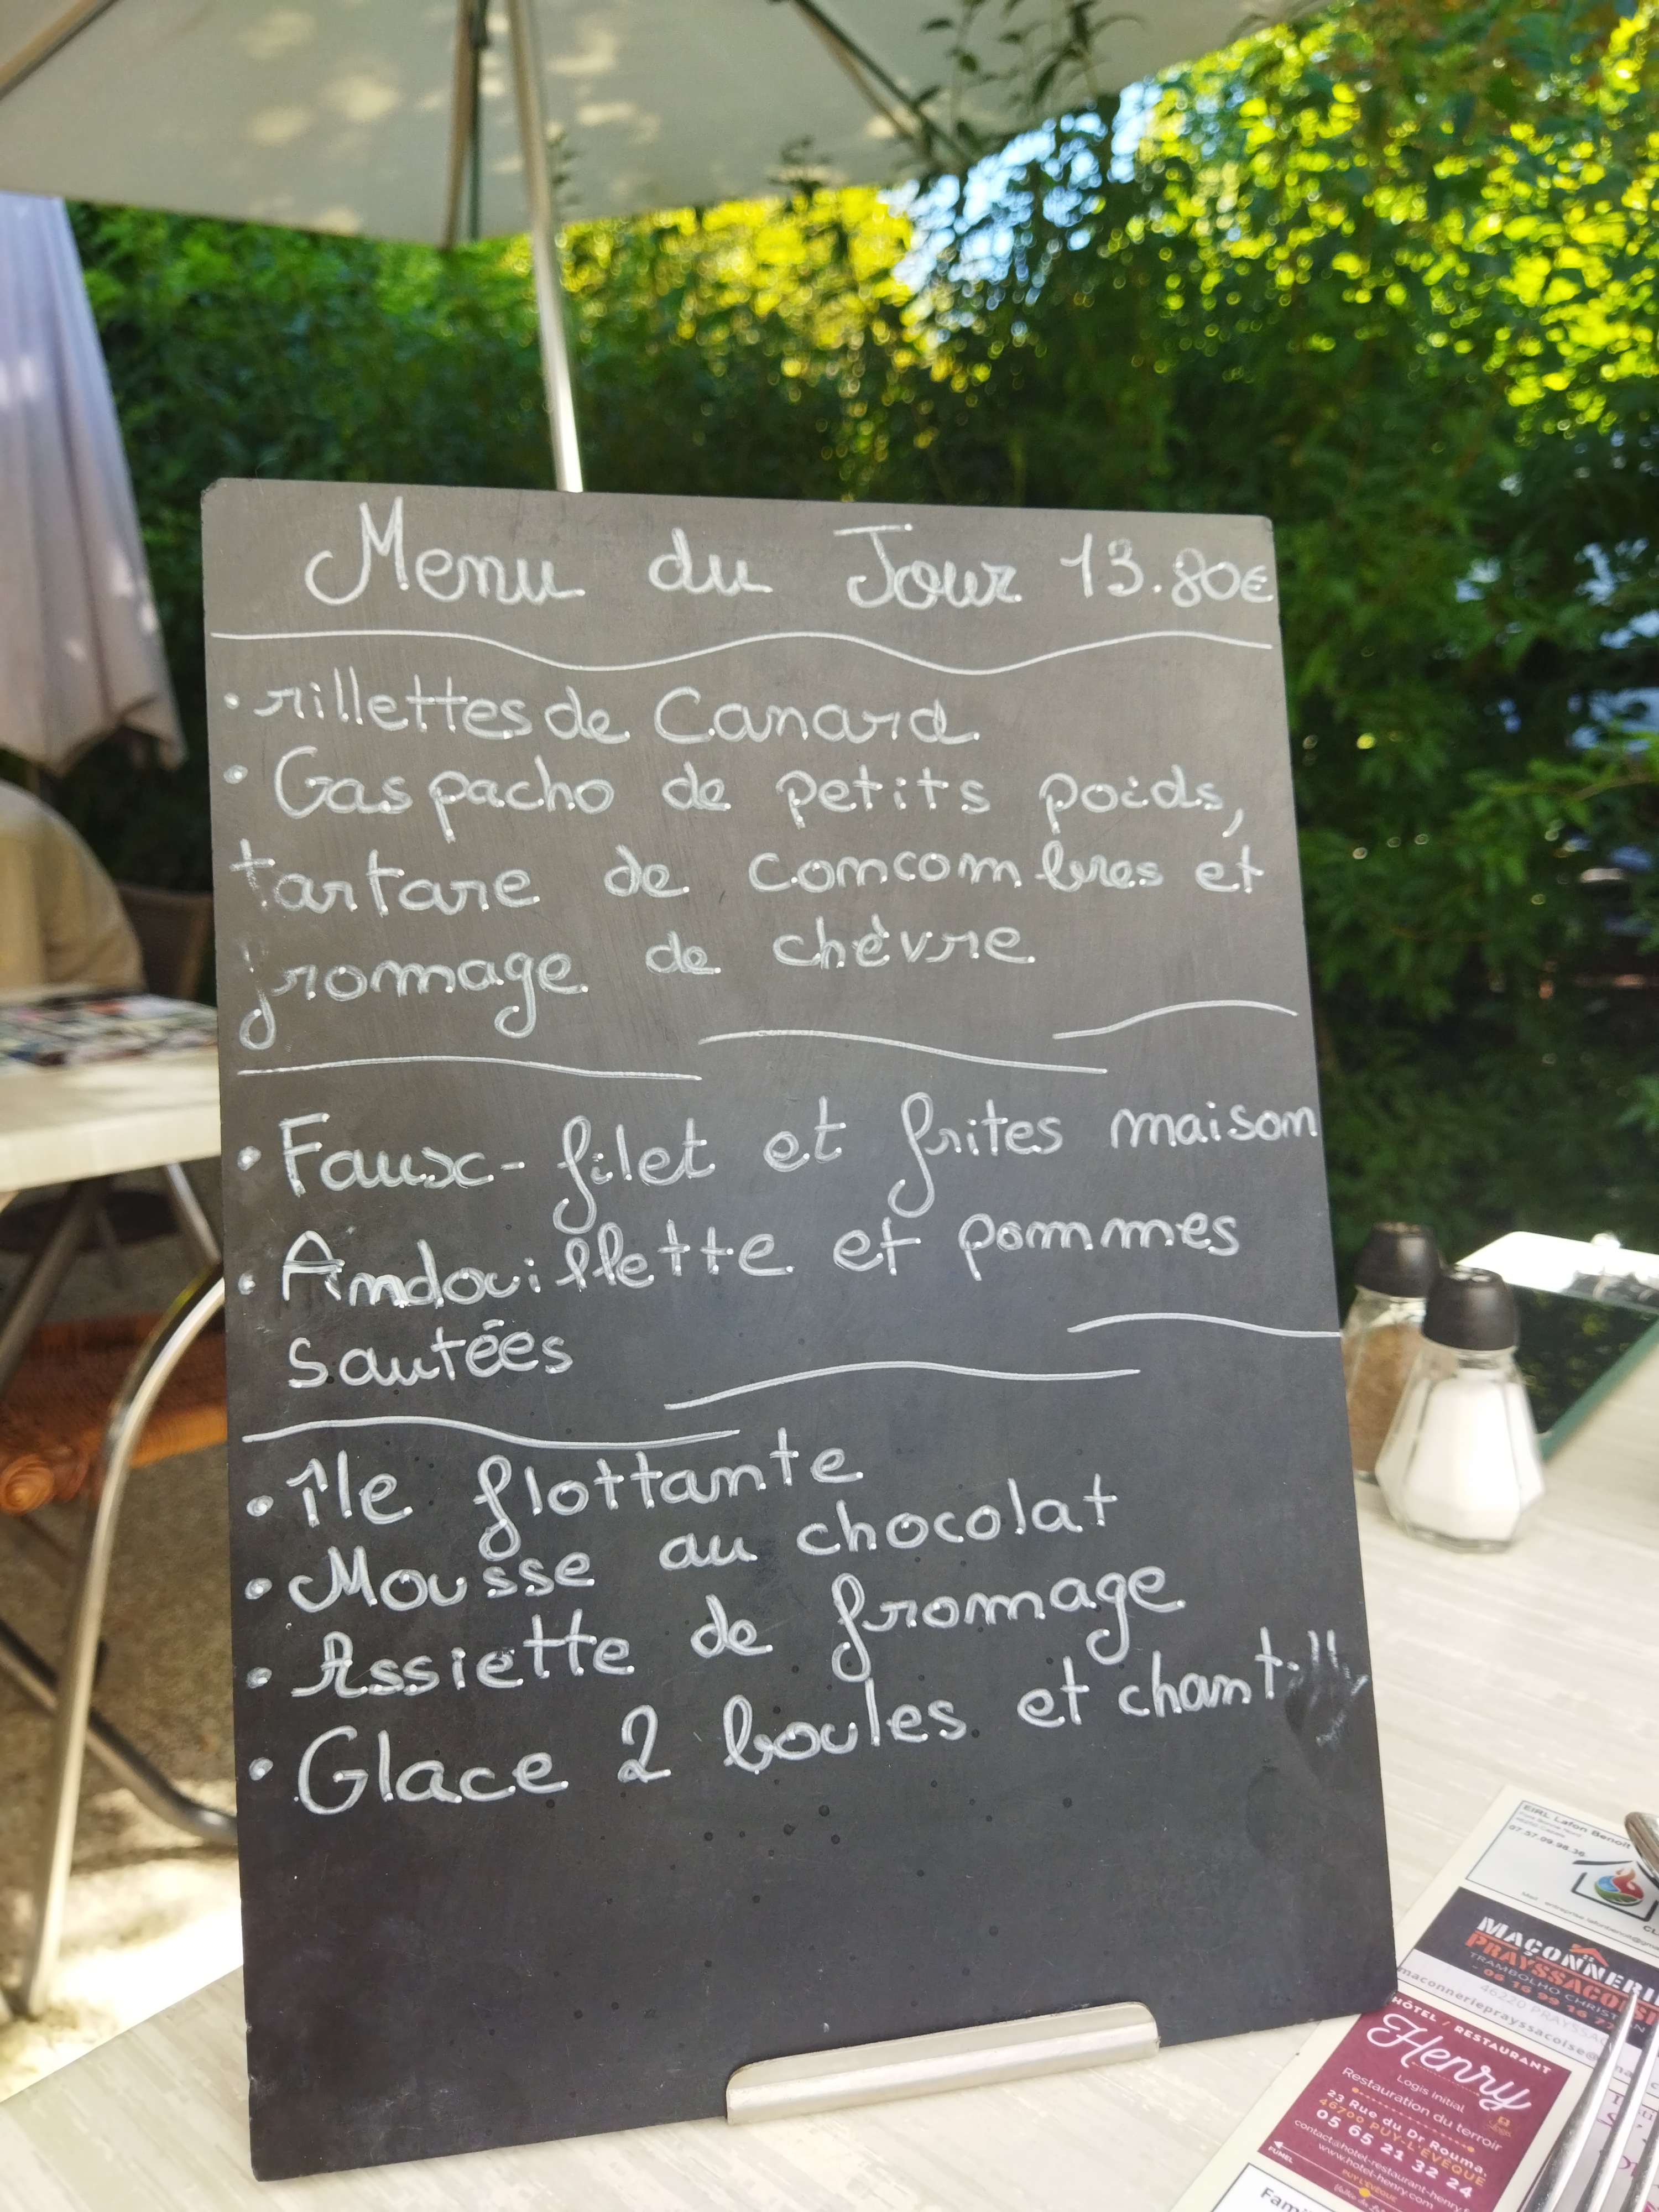 Menu du Jour 13.80€
• rillettes de Canard
• Gaspacho de petits poids,
tartare de concombres et
fromage de chèvre
• Faux-filet et frites maison
• Andouillette et pommes
sautées
• Île flottante
• Mousse au chocolat
• Assiette de fromage
• Glace 2 boules et chant.
EIRL Lafon Benoit
07.57.09.98.36
MAÇONNERI
PRAYSSACOIS
TRAMBOLHO CHRIST
06 16 99 16 77
46220 PRAYSSAC
maconnerieprayssacoise@
HÔTEL / RESTAURANT
Henry
Logis initial
Restauration du terroir
23 Rue du Dr Rouma,
46700 PUY-L'ÉVÊQUE
05 65 21 32 24
contact@hotel-restaurant-henry.f
www.hotel-henry.com
FUMEL
PUY L'ÉVÊQUE
Fami